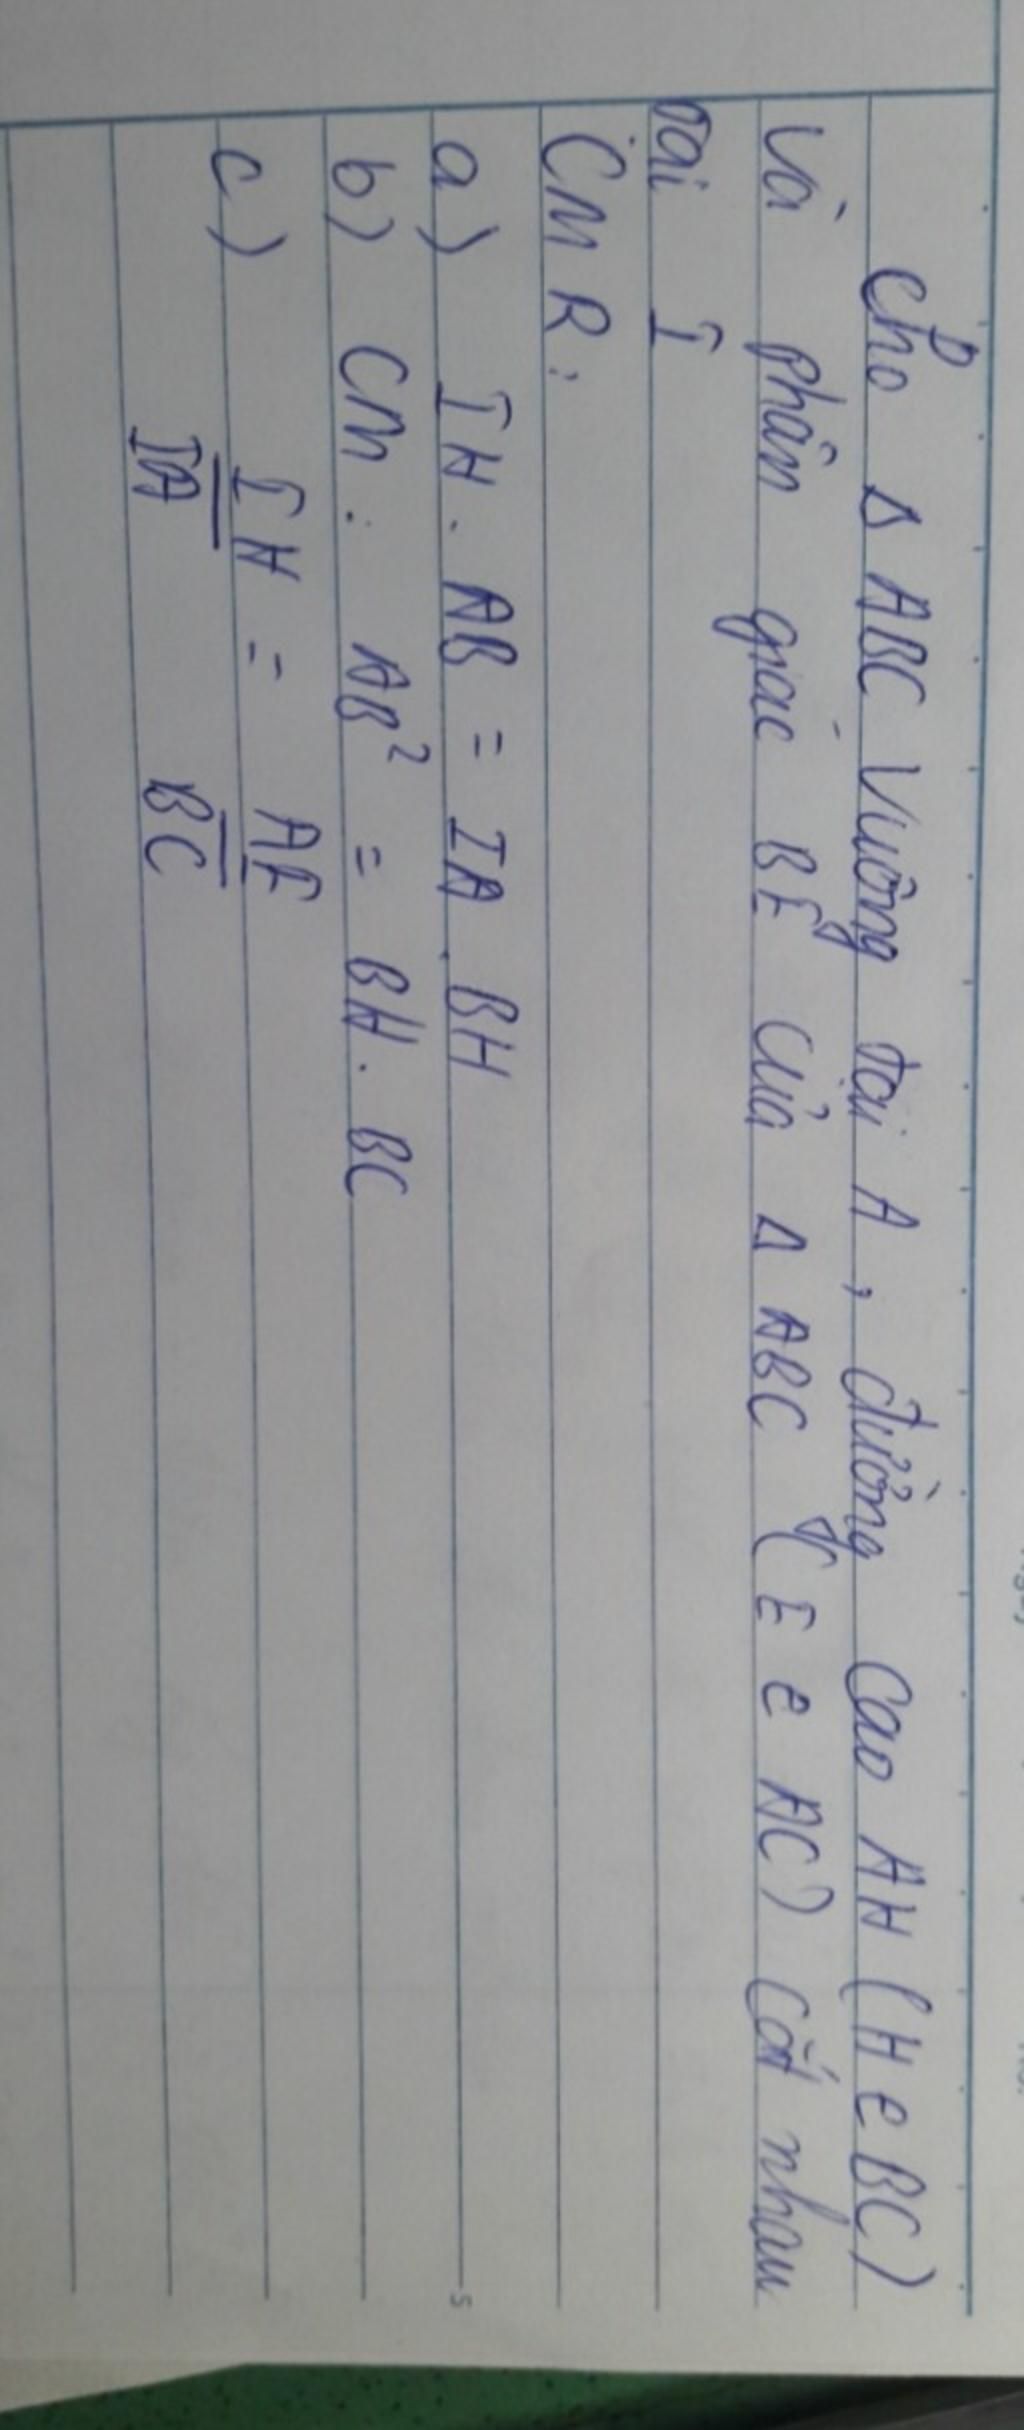 Cho Δ ABC vuông tại A, đường cao AH (H e BC)
và phân giác BE của Δ ABC (E e AC) cắt nhau
tại I
CMR:
a) IH . AB = IA . BH
b) CM : AB² = BH . BC
c) IH = AE
IA BC